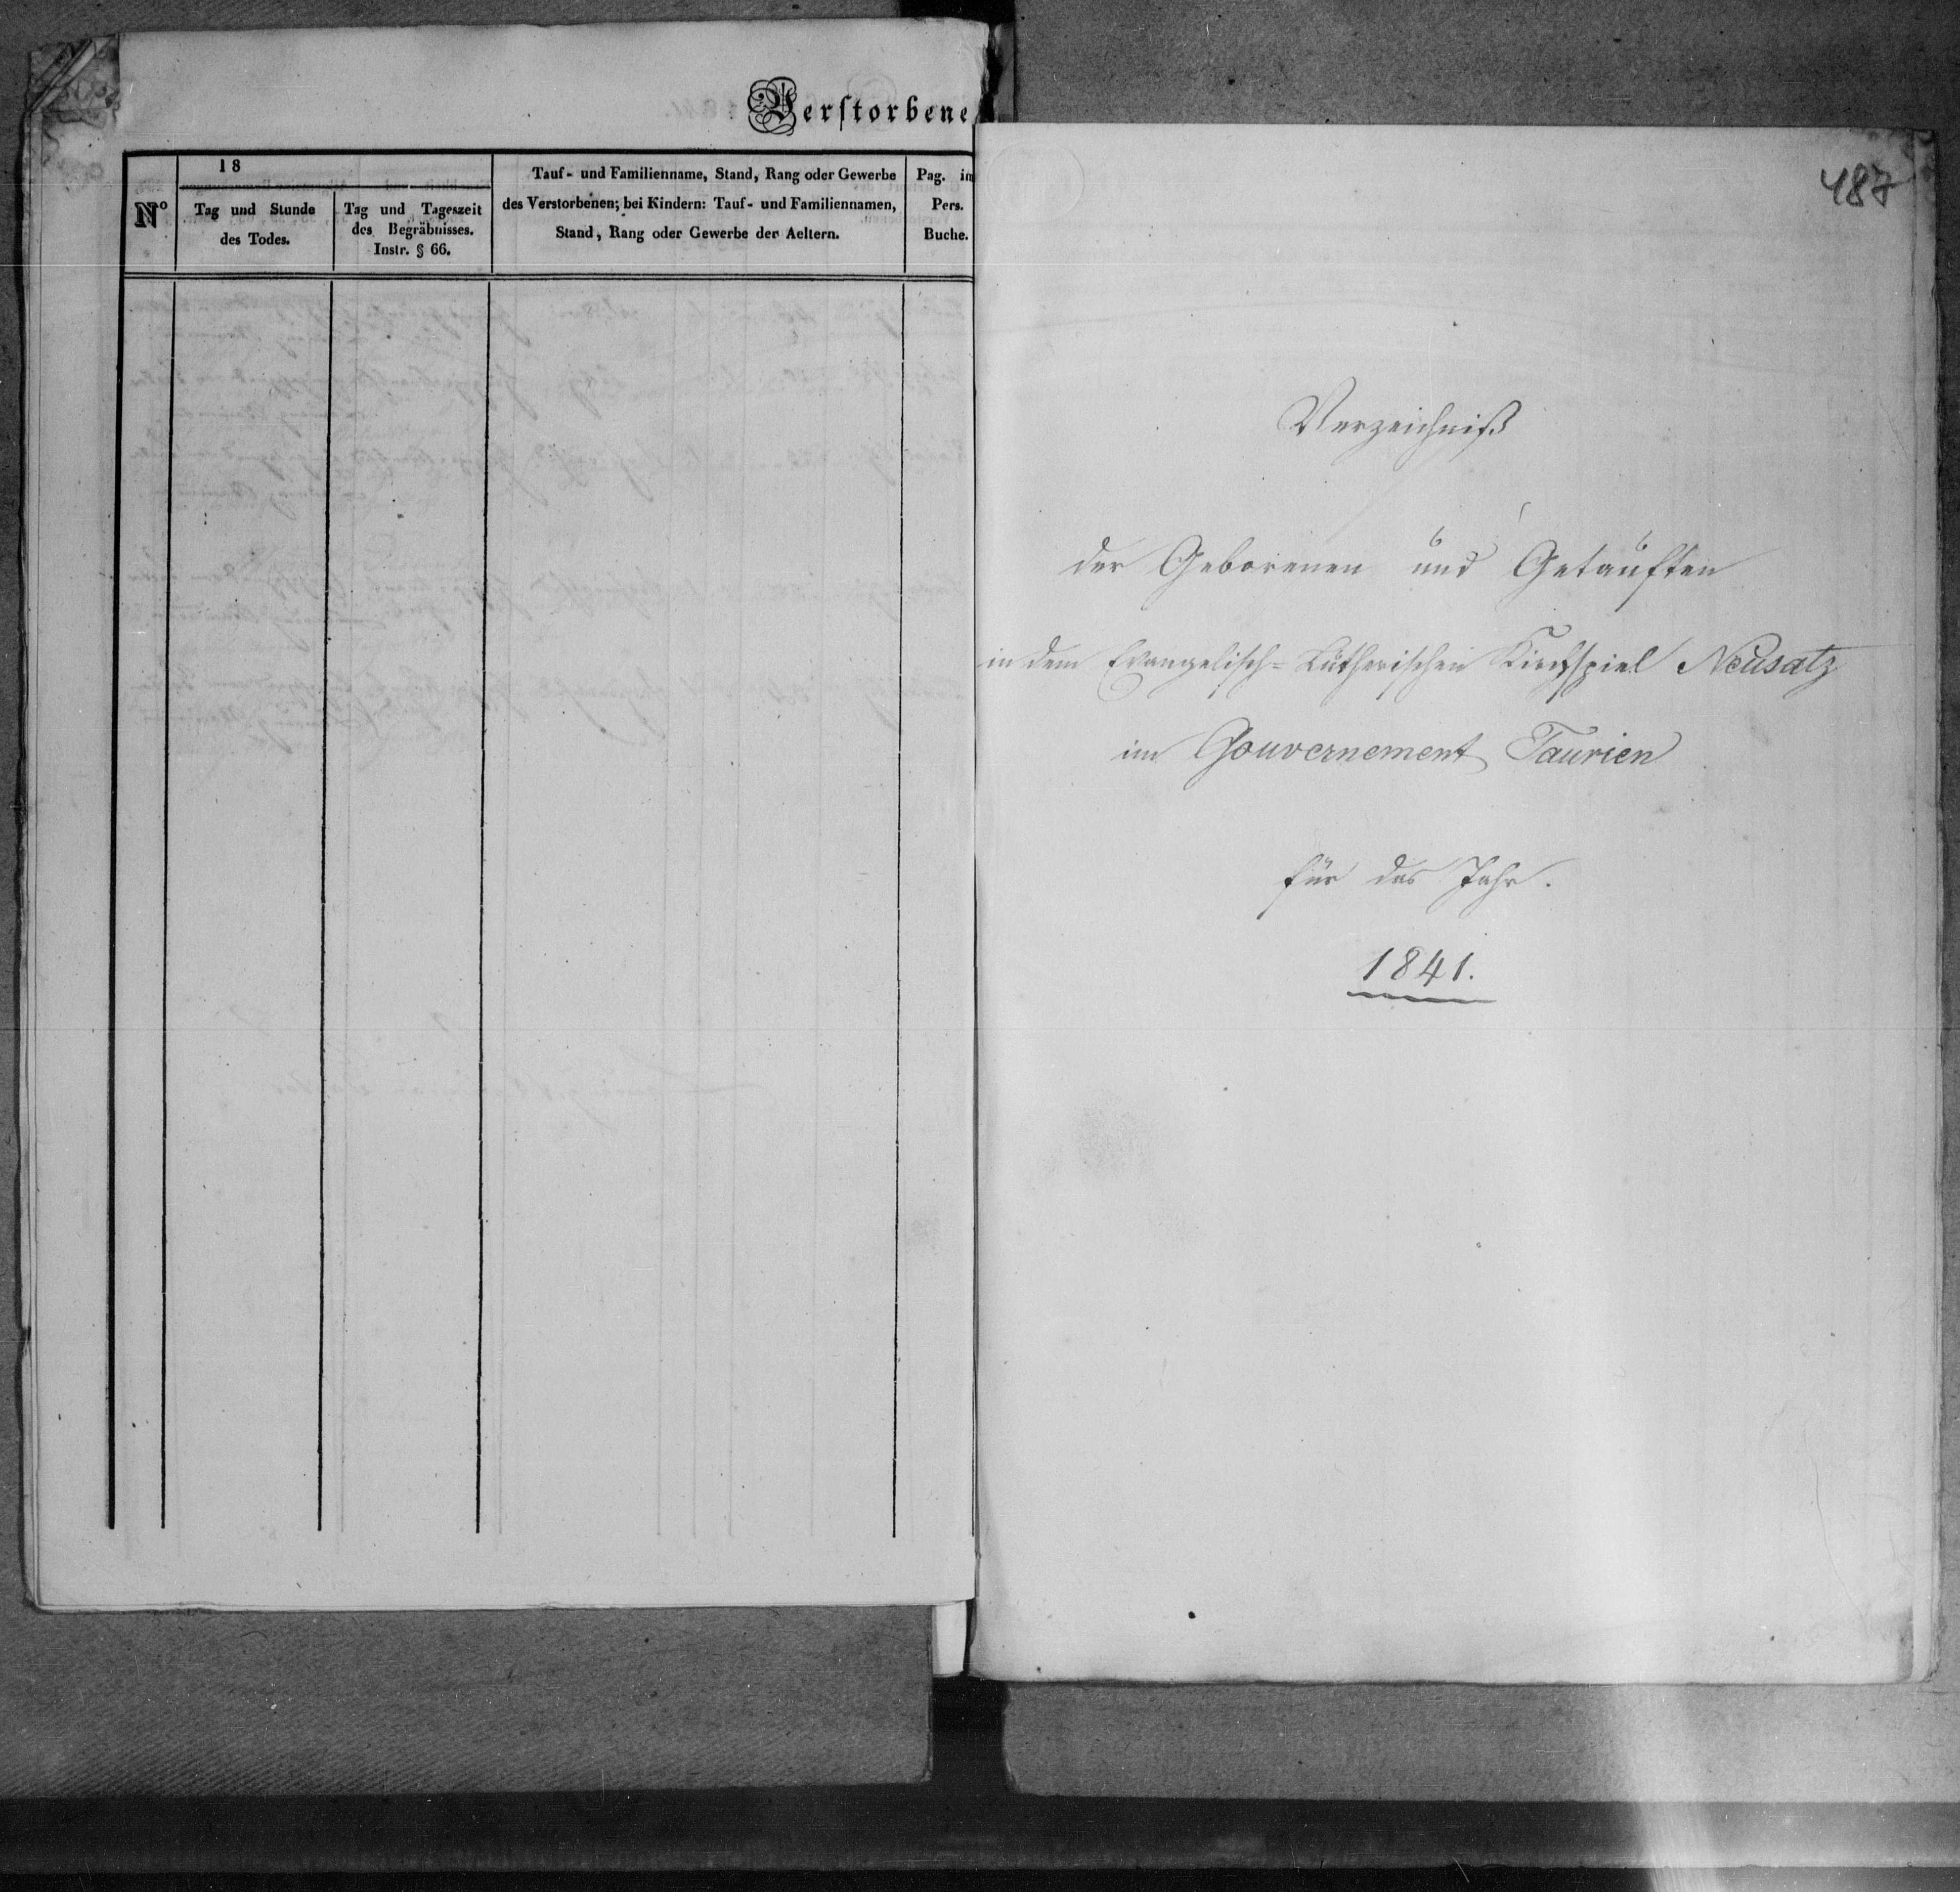 Verstorbene
18
N°
Tag und Stunde
des Todes.
Tag und Tageszeit
des Begräbnisses.
Instr. § 66.
Tauf- und Familienname, Stand, Rang oder Gewerbe
des Verstorbenen; bei Kindern: Tauf- und Familiennamen,
Stand, Rang oder Gewerbe der Aeltern.
Pag. in
Pers.
Buche.
487
Verzeichniß
der Geborenen und Getauften
in dem Evangelisch-Lutherischen Kirchspiel Neusatz
im Gouvernement Taurien
für das Jahr.
1841.